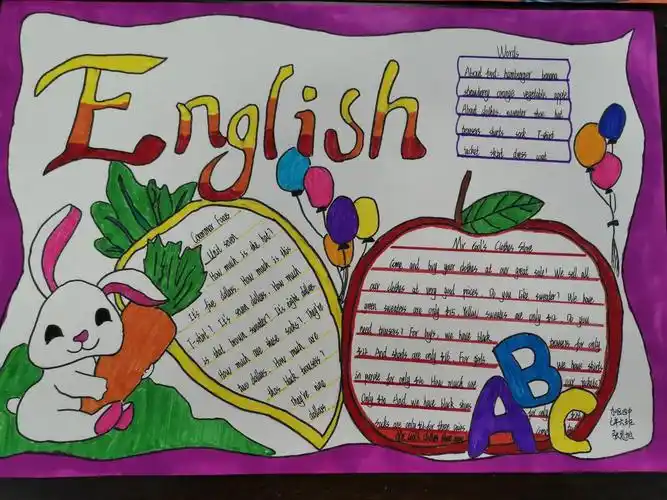 English
Words
About food: hamburger banana
strawberry orange vegetable apple
About clothes: sweater shoe hat
trousers shorts sock T-shirt
jacket skirt dress coat
Grammar Focus
Unit seven
How much is the hat?
It's five dollars. How much is this
T-shirt? It's seven dollars. How much
is that brown sweater? It's eight dollars.
How much are these socks? They're
two dollars. How much are
those black trousers?
They're nine
dollars.
Mr Cool's Clothes Store
Come and buy your clothes at our great sale! We sell all
our clothes at very good prices. Do you like sweater? We have
green sweaters are only Yellow sweaters are only Do you
need trousers? For boys, we have black trousers for only
And shorts are only For girls we have skirts
in purple for only How much are our jackets?
Only And we have black shoes for only
Socks are only for three pairs
Mr Cool's Clothes Store
A B C